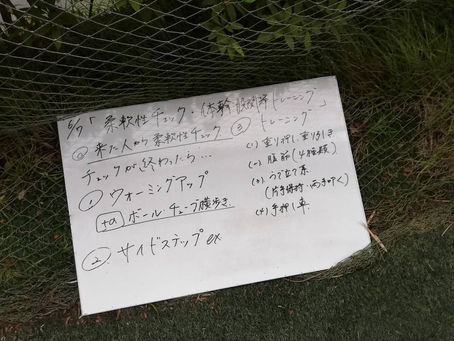 5/7「柔軟性チェック・体幹 股関節トレーニング」
⓪ 来た人から柔軟性チェック
チェックが終わったら…
① ウォーミングアップ
+α ボールチューブ横歩き
② サイドステップ ex
③ トレーニング
(1) 重り押し、重り引き
(2) 腹筋(4種類)
(3) うで立て系
(片手保持・両手叩く)
(4) 手押し車